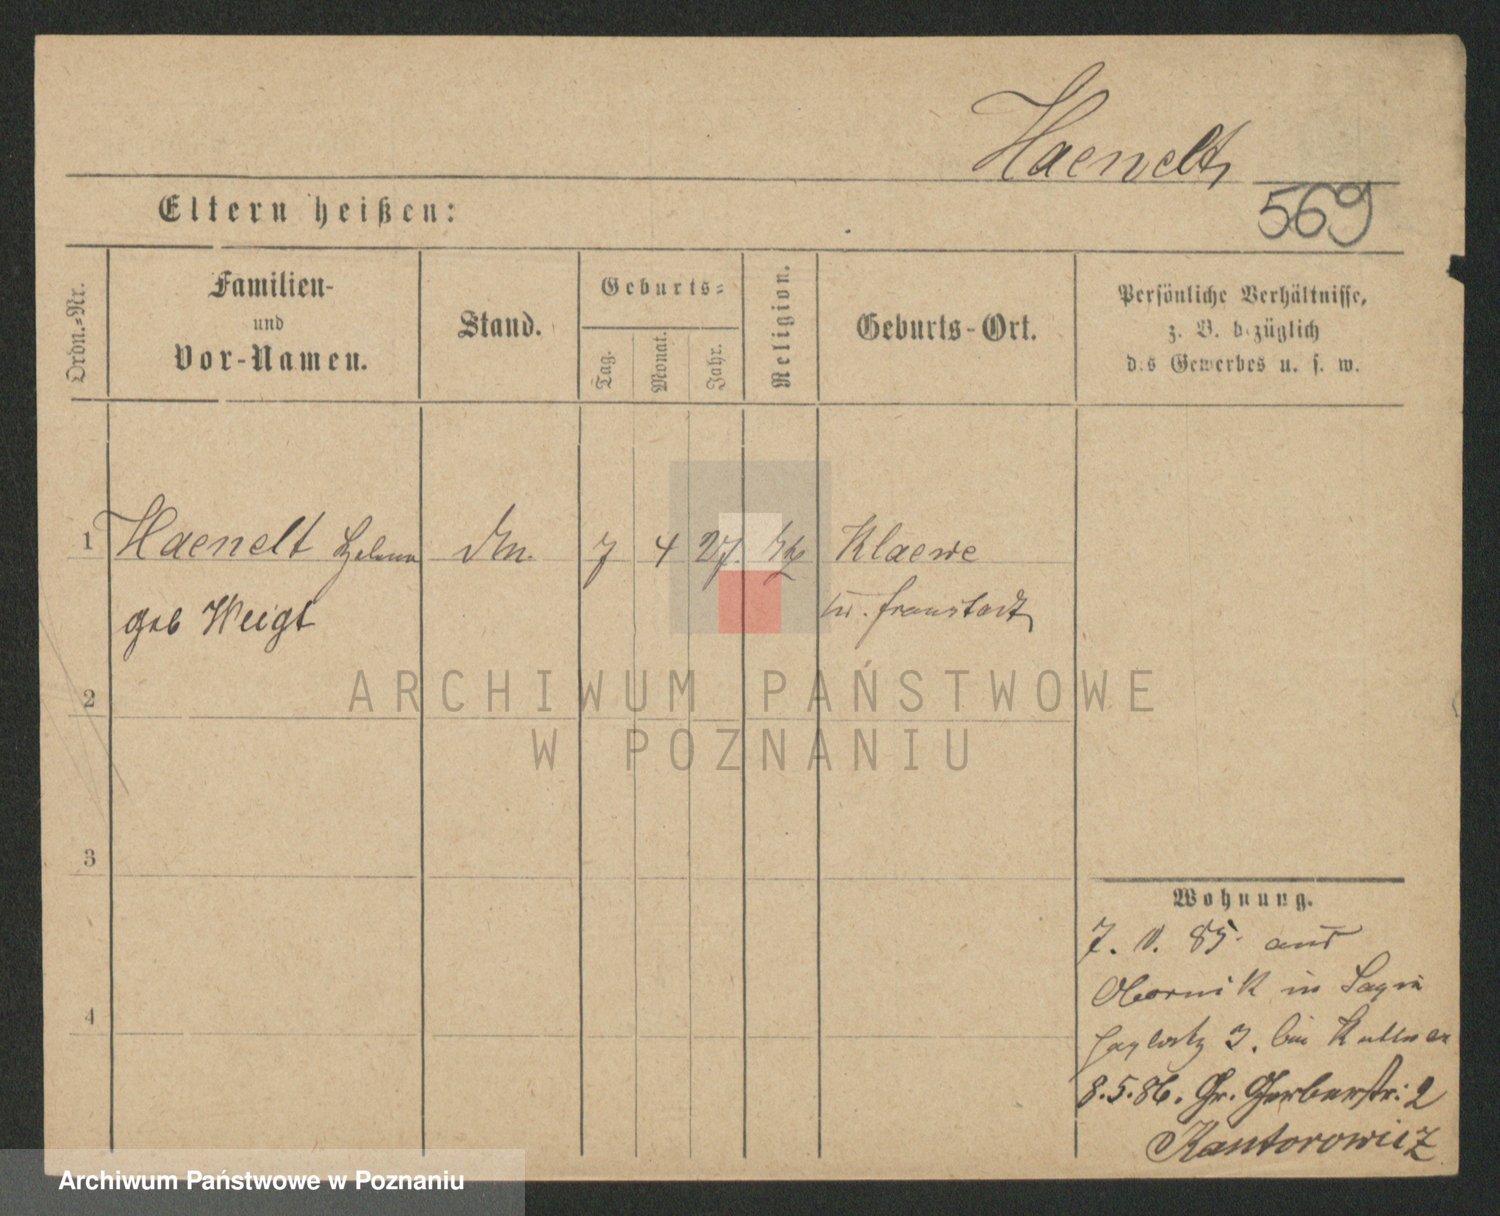 Haenelt
569
Eltern heißen:
Ordn.=Nr.
Familien-
und
Vor-Namen.
Stand.
Geburts=
Tag.
Monat.
Jahr.
Religion.
Geburts-Ort.
Persönliche Verhältnisse,
z. B. bezüglich
des Gewerbes u. s. w.
1
Haenelt Helena
7 4 27.
Klaewe
geb Weigt
Fraustadt
ARCHIWUM PAŃSTWOWE
2
W POZNANIU
3
Wohnung.
7. 85. aus
Obornik in
4
3. bei
8.5.86. Gr. Gerberstr: 2
Kantorowicz
Archiwum Państwowe w Poznaniu